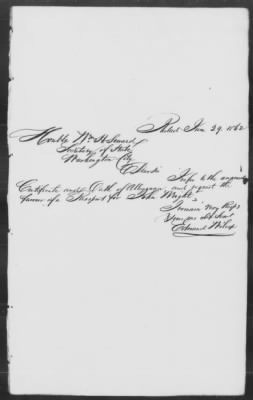 Philad. Jan. 29. 1862
Honble Wm H Seward
Secretary of State
Washington City
Dear Sir
I refer to the annexed
Certificate and Oath of Allegiance and request the
favour of a Passport for John Wright
I remain very Resp
Your ob Serv
Edmund